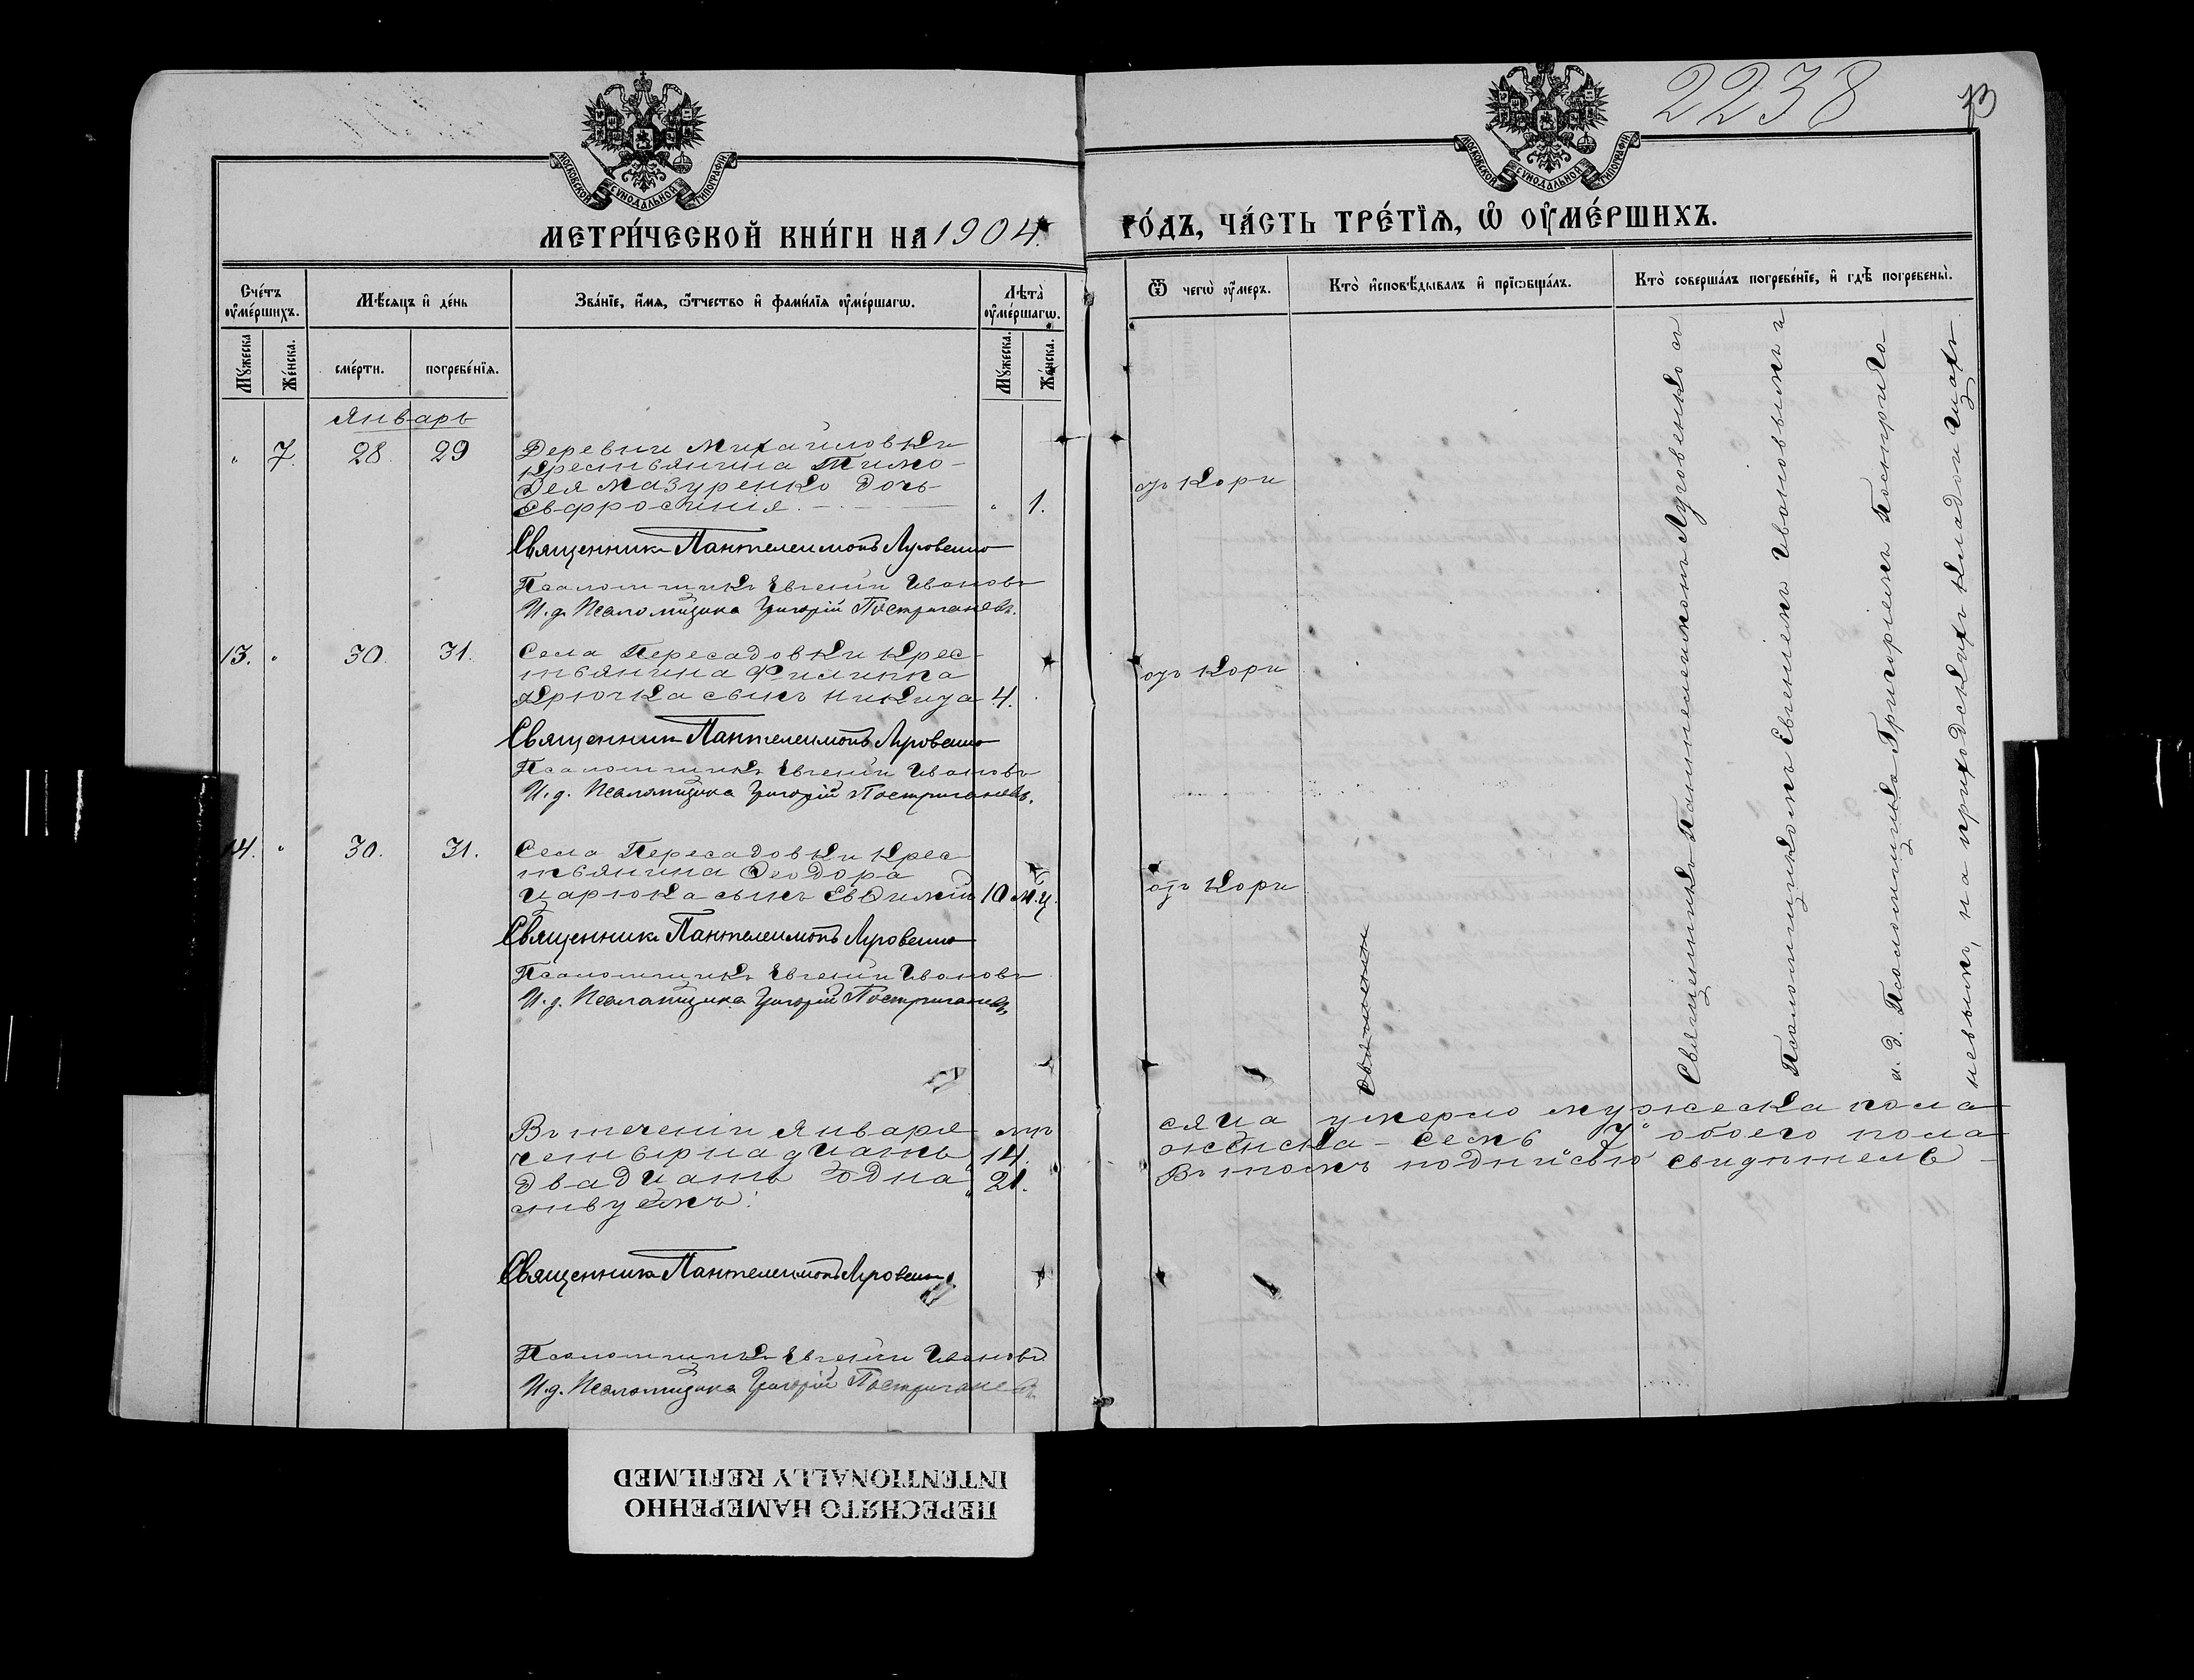 2238
73
МОСКОВСКОЙ СѴНОДАЛЬНОЙ ТИПОГРАФІИ
МОСКОВСКОЙ СѴНОДАЛЬНОЙ ТИПОГРАФІИ
МЕТРИ́ЧЕСКОЙ КНИ́ГИ НА 1904.
ГО́ДЪ, ЧА́СТЬ ТРЕ́ТЇѦ, Ѡ҆ ОУ҆МЕ́РШИХЪ.
Сче́тъ оу҆ме́ршихъ.
Мѣ́сѧцъ и҆ де́нь
Зва́нїе, и҆́мѧ, ѻ҆́тчество и҆ фами́лїѧ оу҆ме́ршагѡ.
Лѣта̀ оу҆ме́ршагѡ.
Ѿ чегѡ̀ оу҆́меръ.
Кто̀ и҆сповѣ́дывалъ и҆ прїѡбща́лъ.
Кто̀ соверша́лъ погребе́нїе, и҆ гдѣ̀ погребены̀.
Мꙋ́жеска
Же́нска.
сме́рти.
погребе́нїѧ.
Мꙋ́жеска.
Же́нска.
Январь
" 7. 28 29 Деревни Михайловки
крестьянина Тимо-
ѳея Мазуренко дочь
Евфросинія. " 1. отъ кори
Священникъ Пантелеимонъ Луговенко
Псаломщикъ Евгеній Ивановъ
И.д. Псаломщика Григорій Постриганевъ.
13. " 30. 31. Села Пересадовки крес-
тьянина Филиппа
Крючка сынъ Никита 4. отъ кори
Священникъ Пантелеимонъ Луговенко
Псаломщикъ Евгеній Ивановъ
И.д. Псаломщика Григорій Постриганевъ.
14. " 30. 31. Села Пересадовки крес-
тьянина Ѳеодора
Царюка сынъ Евѳимій 10 м.ц. отъ кори
Священникъ Пантелеимонъ Луговенко
Псаломщикъ Евгеній Ивановъ
И.д. Псаломщика Григорій Постриганевъ
Священникъ Пантелеимонъ Луговенко съ
Псаломщикомъ Евгеніемъ Ивановымъ и
и.д. Псаломщика Григоріемъ Пострига-
невымъ, на приходскихъ кладбищахъ.
Въ теченіи Января мѣсяца умерло мужеска пола
четырнадцать 14. женска - семь 7. обоего пола
двадцать одна 21. Въ томъ подписью свидѣтель-
ствуемъ:
Священникъ Пантелеимонъ Луговенко
Псаломщикъ Евгеній Ивановъ
И.д. Псаломщика Григорій Постриганевъ.
ПЕРЕСНЯТО НАМЕРЕННО
INTENTIONALLY REFILMED